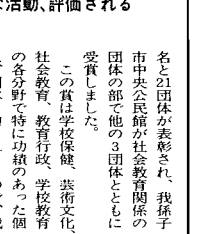 な活動、評価される
名と21団体が表彰され、我孫子
市中央公民館が社会教育関係の
団体の部で他の3団体とともに
受賞しました。
この賞は学校保健、芸術文化、
社会教育、教育行政、学校教育
の各分野で特に功績のあった個